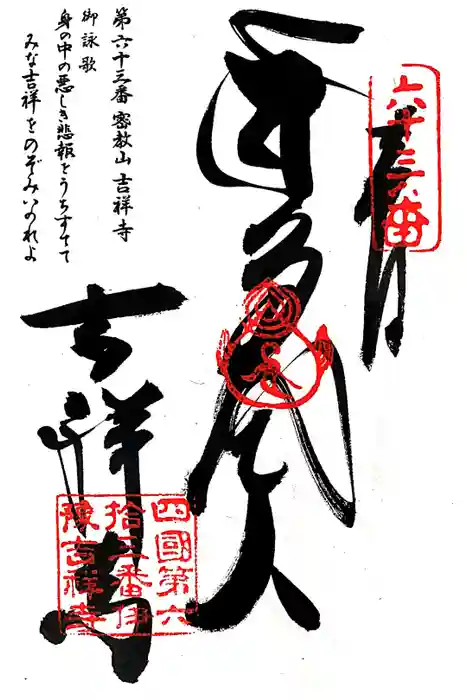 第六十三番 密教山 吉祥寺
御詠歌
身の中の悪しき悲報をうちすてて
みな吉祥をのぞみいのれよ
六十三番
奉拝
毘沙門天
吉祥寺
四國第六
拾三番伊
豫吉祥寺